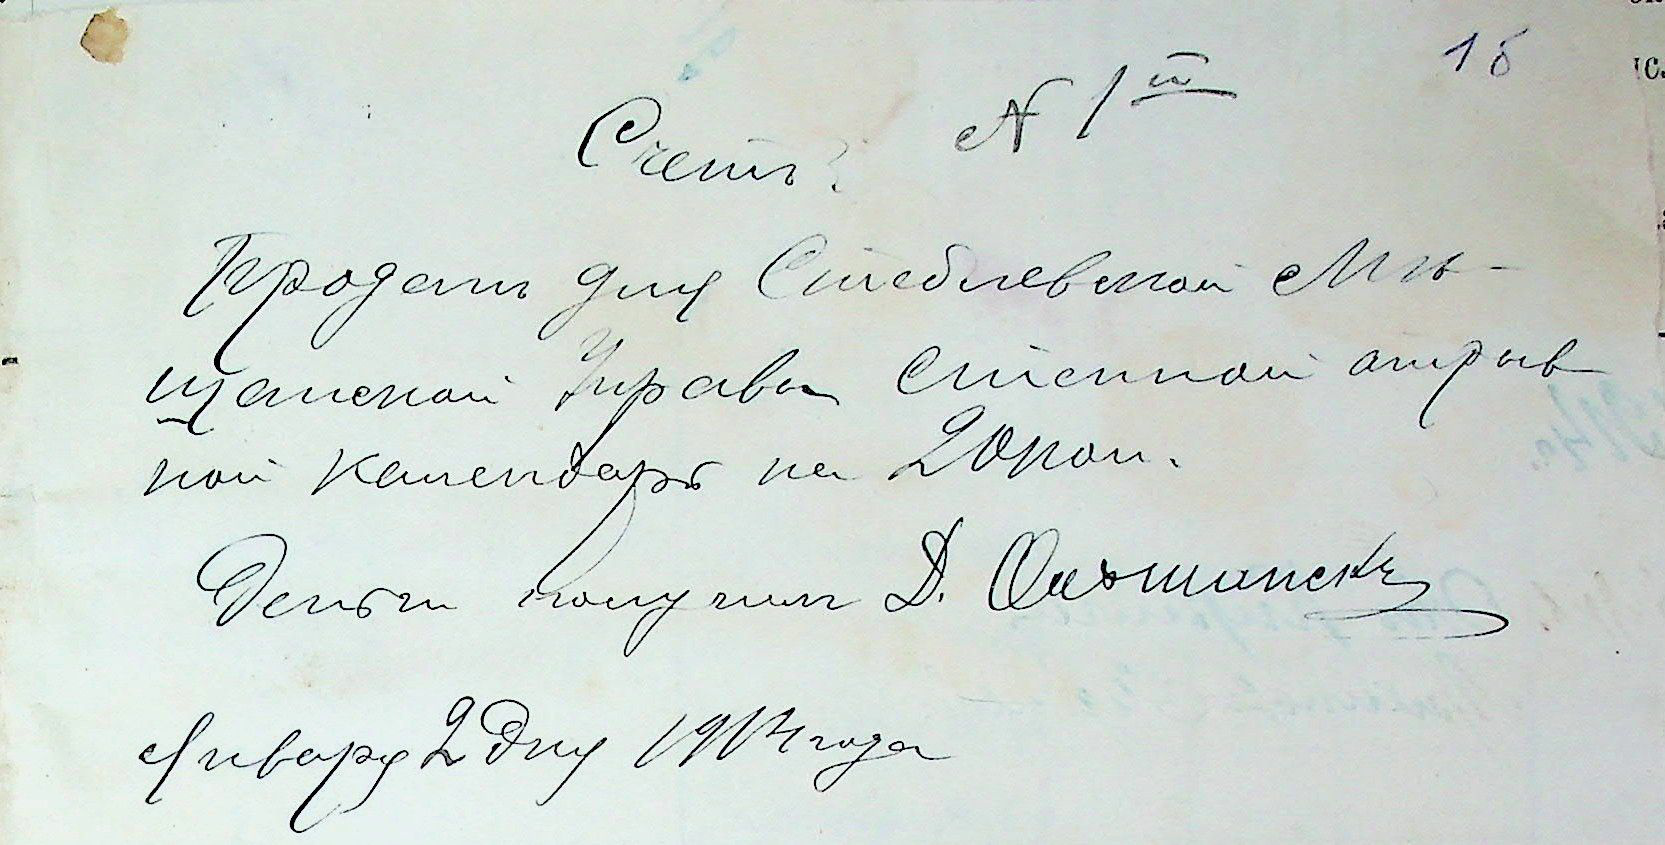 18
Счетъ № 1й
Проданъ для Стеблевской Мѣ-
щанской Управы стенной отрыв
ной календарь на 20 коп.
Деньги получилъ Д.
Январу 2 дну 1914 года